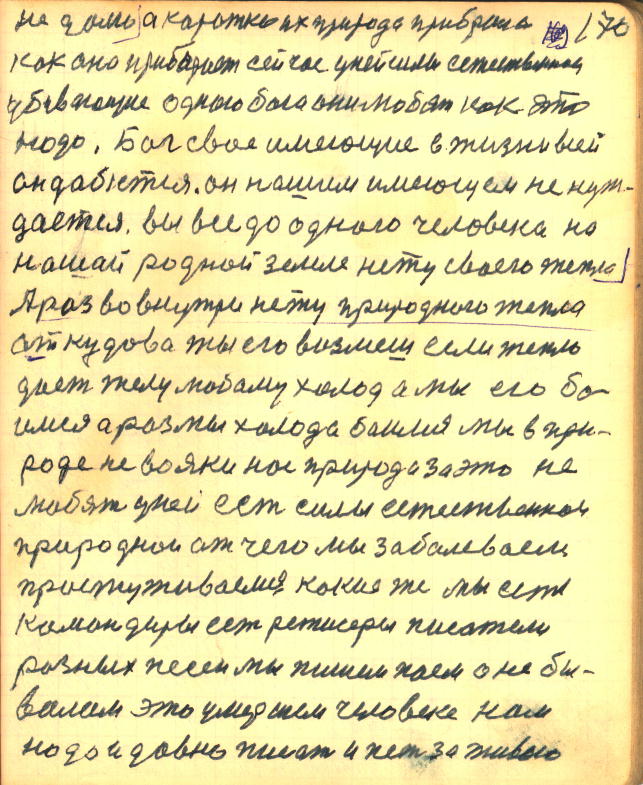 не дало, а коротко их природа прибрала 170
как оно прибирает сейчас у ней силы естественная
убивающие одного бога они любят как это
надо. Бог свое имеющие в жизни всей
он дается. он нашим имеющем не нуж-
дается. вы все до одного человека на
нашай родной земле нету своего тепла
А раз вовнутри нету природного тепла
от кудова ты его возмеш если тепло
дает телу любому холод а мы его бо-
имся а раз мы холода баимся мы в при-
роде не вояки нас природа за это не
любят у ней ест силы естественной
природной от чего мы заболеваем
простуживаемся какие же мы есть
камандиры ест режисеры писатели
розных песен мы пишем поем о не бы-
валам это умершем человеке нам
надо и давно писат и пет за живого